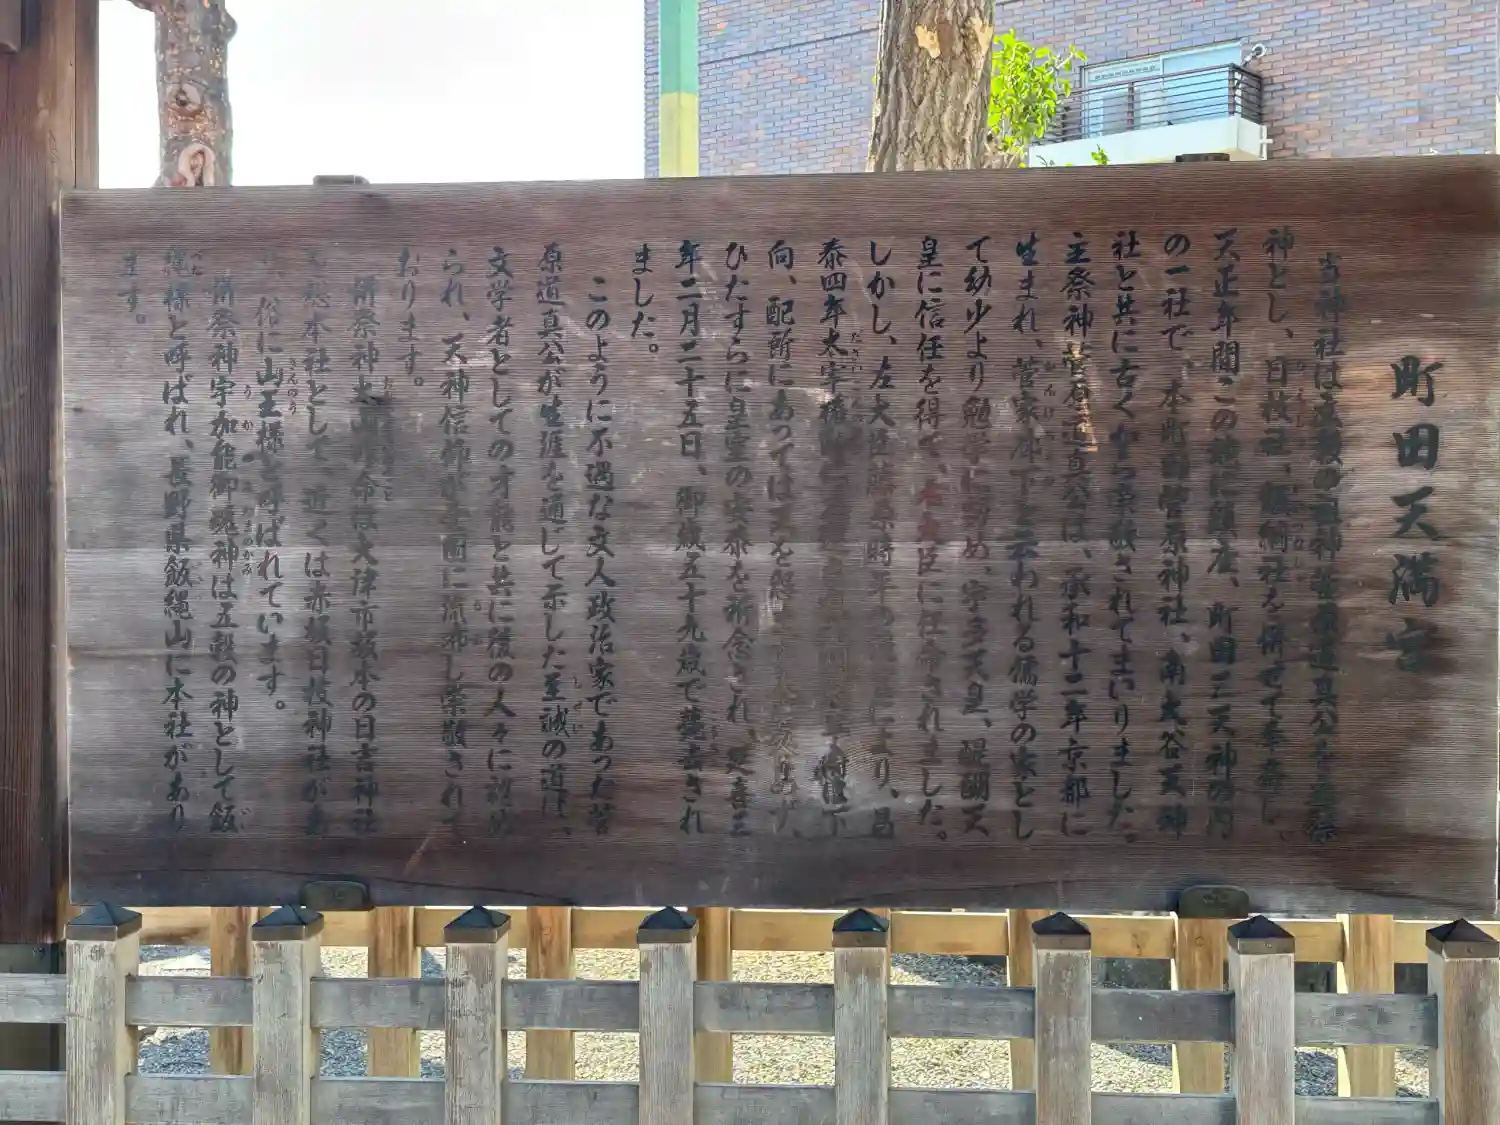 町田天満宮
当神社は 神菅原道真公を主祭
神とし、日枝社、飯綱社を併せて奉斎し、
天正年間この地に鎮座、町田三天神の内
の一社で、本町田菅原神社、南大谷天神
社と共に古くから崇敬されてまいりました。
主祭神菅原道真公は、承和十二年京都に
生まれ、菅家廊下と云われる儒学の家とし
て幼少より勉学に努め、宇多天皇、醍醐天
皇に信任を得て、右大臣に任命されました。
しかし、左大臣藤原時平の により、昌
泰四年太宰権 下
向、配所にあっては天を
ひたすらに皇室の安泰を祈念され、延喜三
年二月二十五日、御歳五十九歳で薨去され
ました。
このように不遇な文人政治家であった菅
原道真公が生涯を通じて示した至誠の道は、
文学者としての才能と共に後の人々に
られ、天神信仰が全国に流布し崇敬されて
おります。
併祭神大山咋命は大津市坂本の日吉神社
を総本社として、近くは赤坂日枝神社があ
り、俗に山王様と呼ばれています。
併祭神宇加能御魂神は五穀の神として飯
縄様と呼ばれ、長野県飯縄山に本社があり
ます。